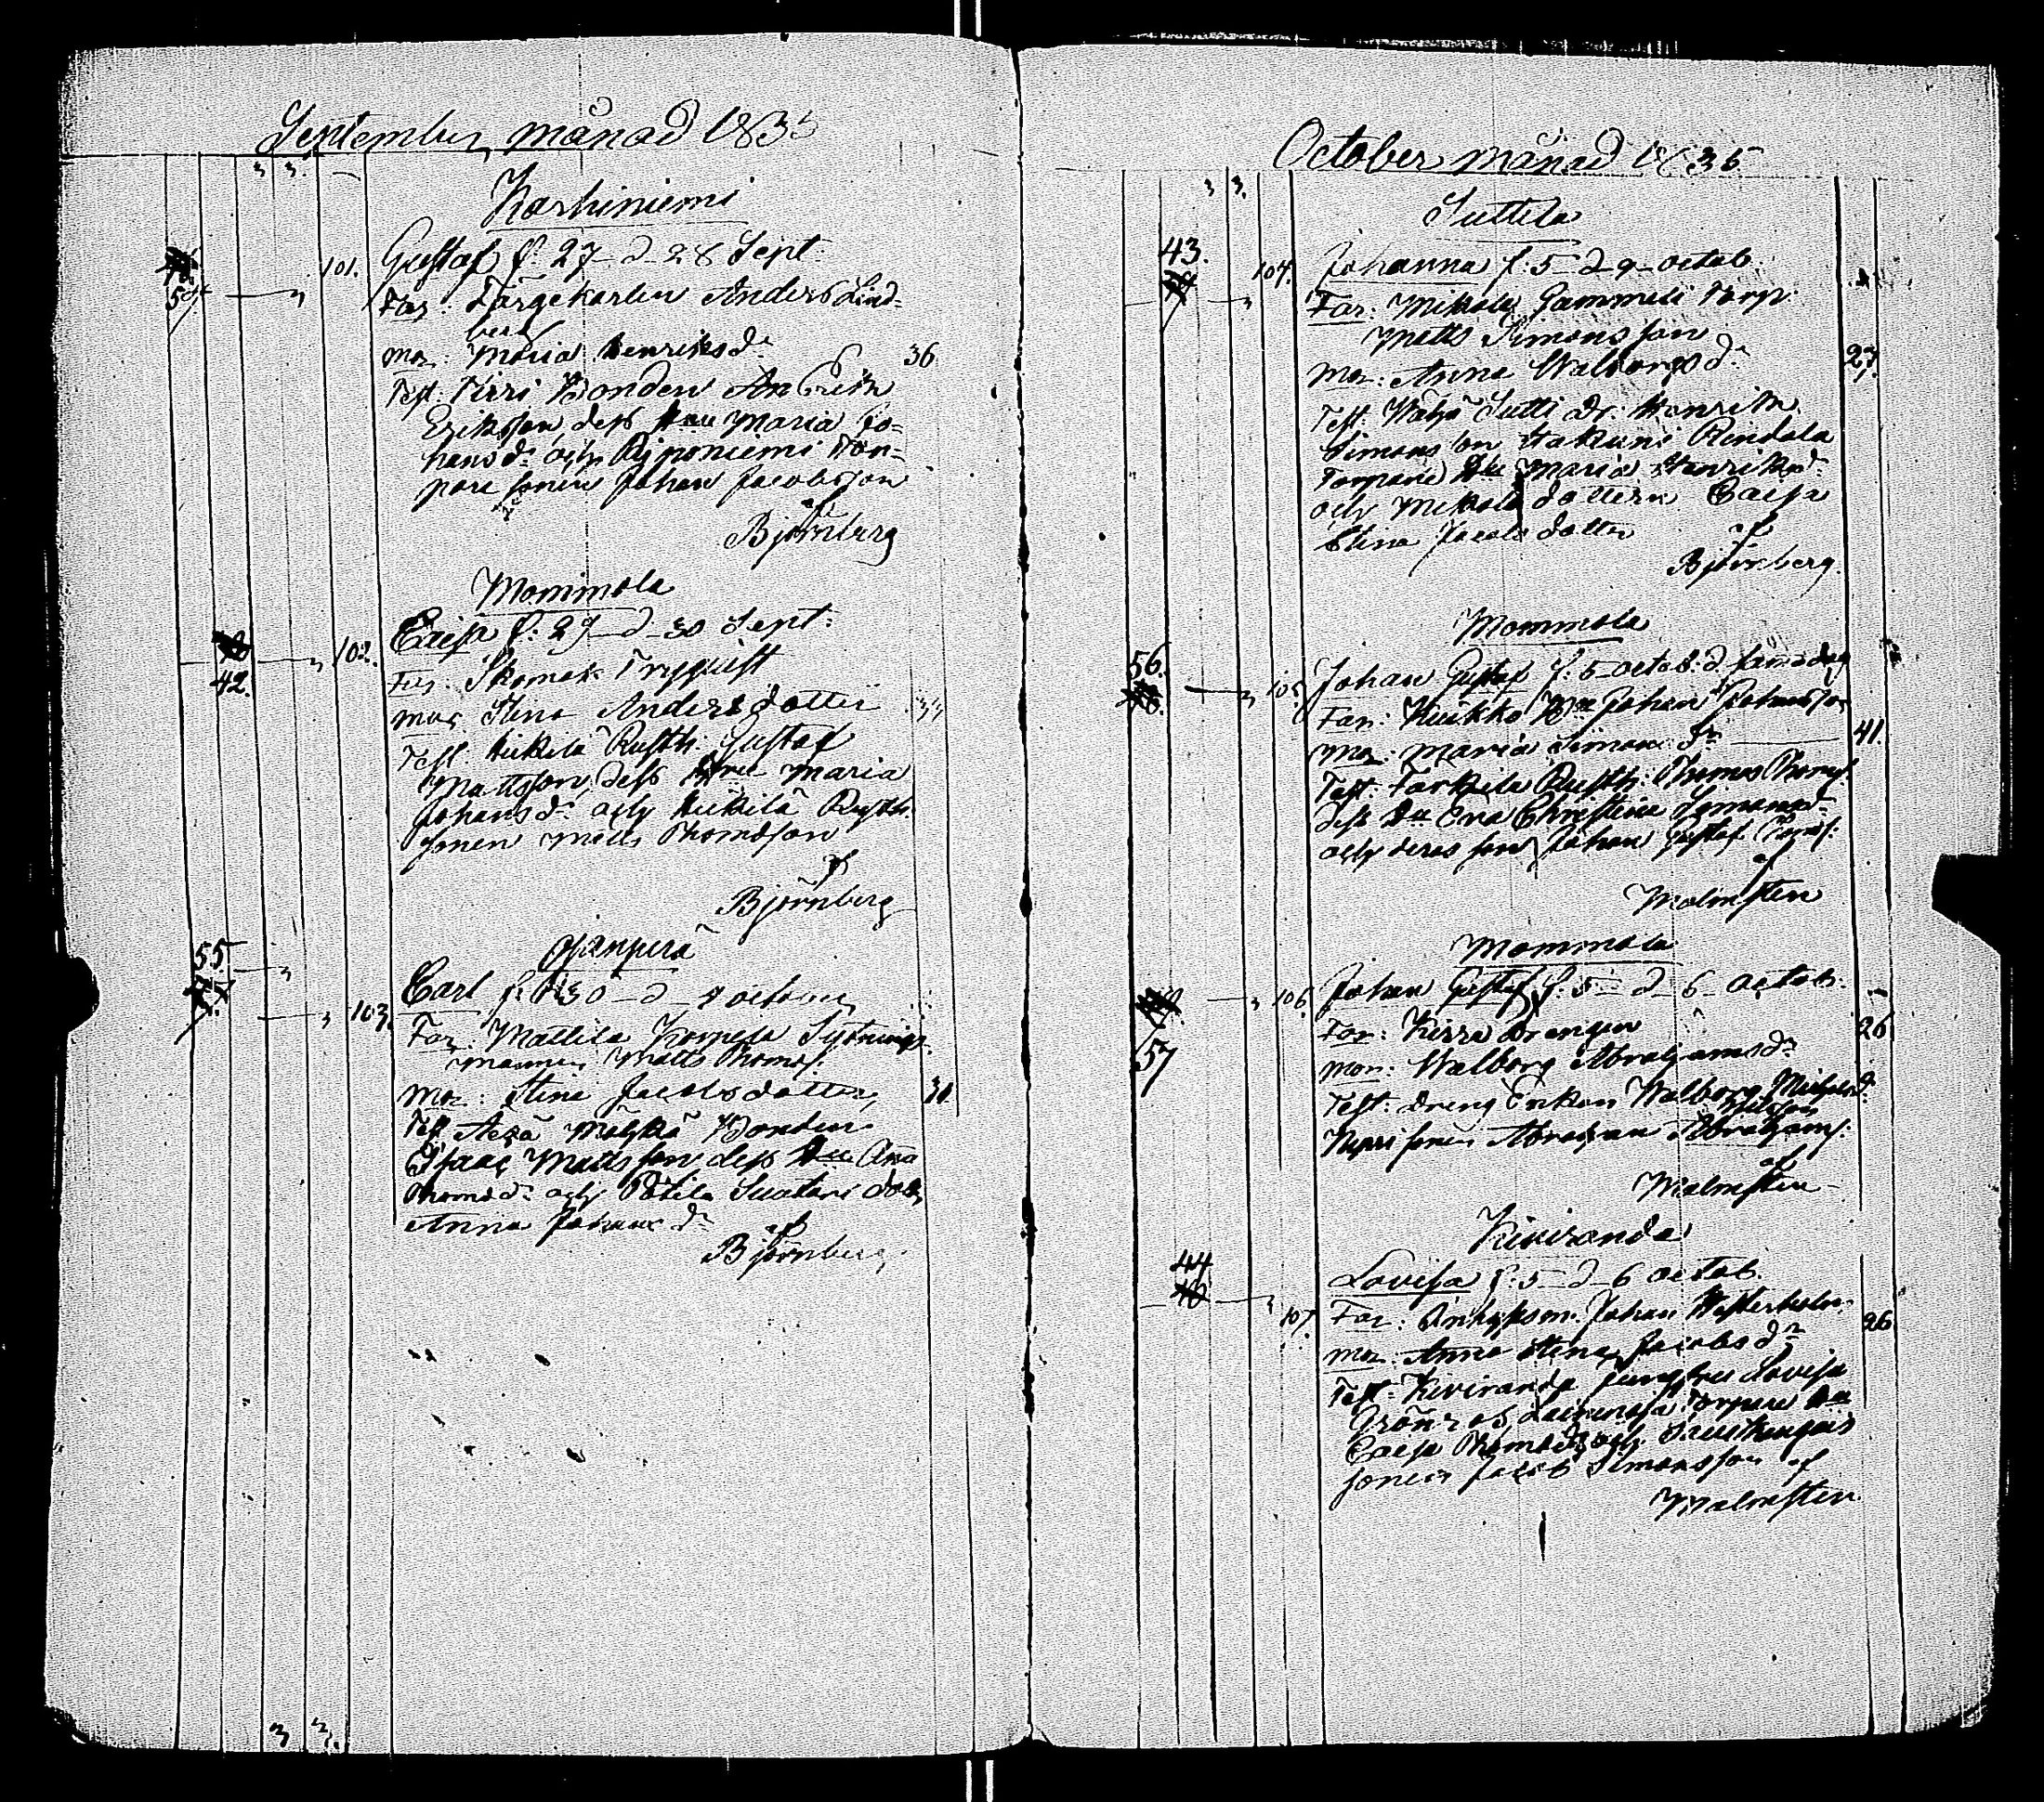 September månad 1835
3 3.
Karhiniemi
54
101.
Gustaf f: 27 d 28 Sept:
Far: Färgekarlen Anders Lind-
berg
mor: Maria Henriksdr
36
Test: Bonden
Eriksson dess Hu Maria Jo-
hansdr och Rijponiemi Tor-
pare sonen Johan Jacobsson
af
Björnberg
Mommola
42.
102.
Caisa f: 29 d 30 Sept:
Far: Skomak
mor Stina Andersdotter
33
Test: Hukila Rusth: Gustaf
Mattsson, dess Hu Maria
Johansdr och Hukila Rusth:
sonen Matts Thomasson
af
Björnberg
Ojanperä
55.
103.
Carl f: 30 d october
Far: Mattila Sytnings-
mannen Matts Thomas:
mor: Stina Jacobsdotter
31.
Test Bonden
Isaac Mattsson dess Hu Ana
Thomasdr och dott
Anna Johansdr
af
Björnberg
3 3.
October månad 1835
3 3.
Suttila
43.
104.
Johanna f: 5 d 9 octob.
Far: Mikola Gammeli Torp:
Matts Simonsson
mor: Anna Walborgsdr
27.
Test: Wähä Sutti dr: Henrik
Simonsson Rindala
Torpare Hu Maria Henriksdr
och Mikola dottern Caisa
Stina Jacobsdotter
af
Björnberg.
Mommola
56.
105.
Johan Gustaf f: 5 octob: d samma dag
Far: Kuikko Bn Johan Johansson
mor: Maria Simonsdr
41.
Test: Farkkila Rusth: Thomas Thomas:
dess Hu Eva Christina Simonsdr
och deras son Johan Gustaf Thomas:
af
Malmsten
Mommola
57
106.
Johan Gustaf f: 5 d 6 Octob:
Far: Kirra Drengen
26
mor: Walborg Abrahamsdr
Test: Dreng Enkan Walborg Michelsdr
sonen Abraham Abrahams:
af
Malmsten
Kiviranda
44
107.
Lovisa f: 5 d 6 octob.
Far: Johan Westerholm
26
mor: Anna Stina Jacobsdr
Test: Kiviranda Jungfru Lovisa
Grönroos Torpare Hu
Caisa Thomasdr och
sonen Jacob Simonsson af
Malmsten